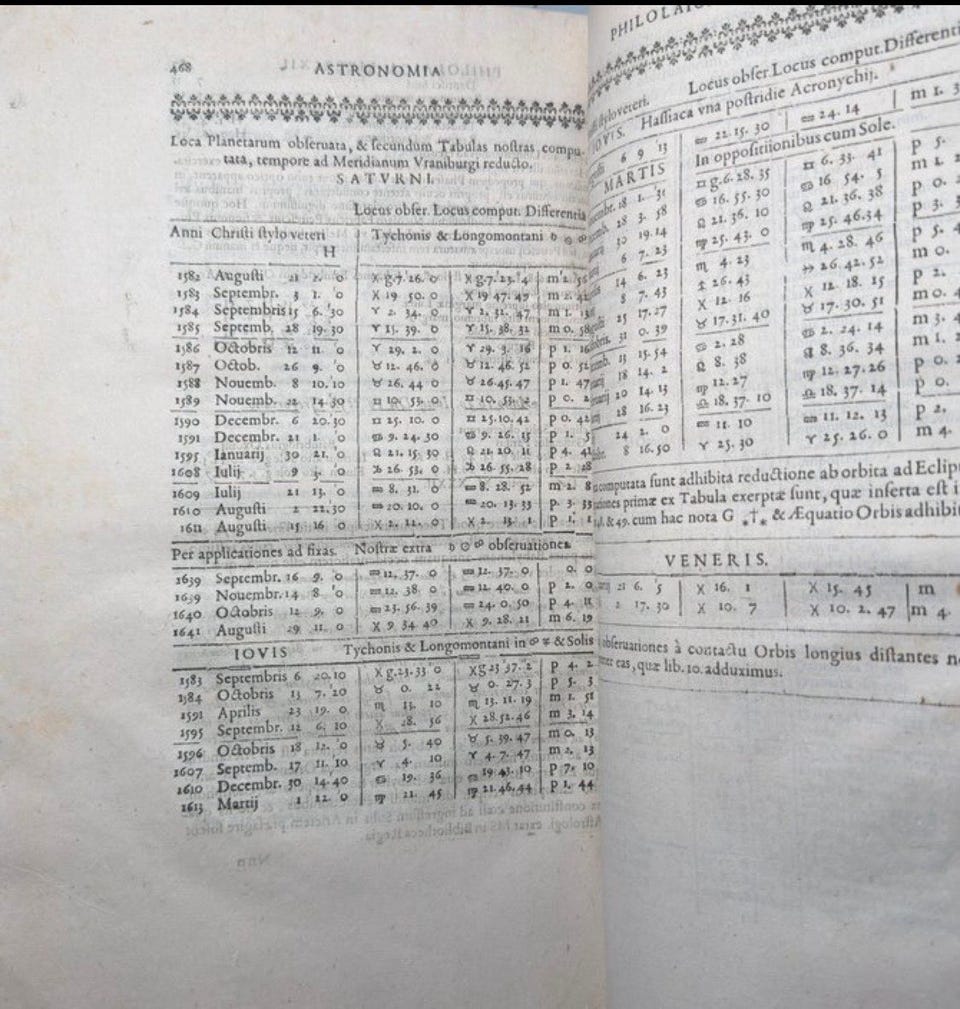 468 ASTRONOMIA
Loca Planetarum obseruata, & secundum Tabulas nostras, compu-
tata, tempore ad Meridianum Vraniburgi reducto.
SATVRNI.
Locus obser. Locus comput. Differentia
Anni Christi stylo veteri Tychonis & Longomontani ♄ ☉ ☍
H
1582 Augusti 21 2. 0 ♓ g.7.26. 0 ♓ g.7.23. 4 m 2. 56
1583 Septembr. 3 1. 0 ♓ 19 50. 0 ♓ 19 47. 47 m 2.
1584 Septembris 15 6. 30 ♈ 2. 34. 0 ♈ 2. 32. 47 m 1. 13
1585 Septemb. 28 19. 30 ♈ 15. 39. 0 ♈ 15. 38. 32 m 0. 58
1586 Octobris 12 11. 0 ♈ 29. 2. 0 ♈ 29. 3. 16 p 1. 16
1587 Octob. 26 9. 0 ♉ 12. 46. 0 ♉ 12. 46. 52 p 0. 52
1588 Nouemb. 8 10. 10 ♉ 26. 44 0 ♉ 26.45.47 p 1. 47
1589 Nouemb. 22 14. 30 ♊ 10. 53. 0 ♊ 10. 53. 2 p 0. 2
1590 Decembr. 6 20.30 ♊ 25. 10. 0 ♊ 25.10.42 p 0. 42
1591 Decembr. 21 1. 0 ♋ 9. 24. 30 ♋ 9. 26. 15 p 1. 5
1595 Ianuarij 30 21. 0 ♌ 21. 15. 30 ♌ 21. 20. 11 p 4. 41
1608 Iulij 9 5. 0 ♑ 26. 53. 0 ♑ 26. 55. 28 p 2 28
1609 Iulij 21 13. 0 ♒ 8. 31. 0 ♒ 8. 28. 52 m 2. 8
1610 Augusti 2 22.30 ♒ 20. 10. 0 ♒ 20. 13. 33 p. 3. 33
1611 Augusti 15 16 0 ♓ 2. 12. 0 ♓ 2. 13. 1 p 1. 1
Per applicationes ad fixas. Nostræ extra ♄ ☉ ☍ obseruationes
1639 Septembr. 16 9. 0 ♒ 12. 37. 0 ♒ 12. 37. 0 0. 0
1639 Nouembr. 14 8. 0 ♒ 12. 38. 0 ♒ 12. 40. 0 p 2. 0
1640 Octobris 12 9. 0 ♒ 23. 56. 39 ♒ 24. 0. 50 p 4. 11
1641 Augusti 29 11. 0 ♓ 9 34 40 ♓ 9. 28. 21 m 6. 19
IOVIS Tychonis & Longomontani in ☍ & Solis
1583 Septembris 6 20. 10 ♓ g.23.33 0 ♓ g 23 37. 2 p 4. 2
1584 Octobris 13 7. 20 ♉ 0. 22 ♉ 0. 27. 3 p 5. 3
1591 Aprilis 23 19. 0 ♏ 13. 10 ♏ 13. 11. 19 m 1. 51
1595 Septembr. 12 6. 10 ♓ 28. 56 ♓ 28.52.46 m 3. 14
1596 Octobris 18 12. 0 ♉ 5. 40 ♉ 5. 39. 47 m 0. 13
1607 Septemb. 17 11. 10 ♈ 4. 10 ♈ 4. 7. 47 m 2. 13
1610 Decembr. 30 14.40 ♋ 19. 36 ♋ 19 43. 10 p 7. 10
1613 Martij 1 22. 0 ♍ 21. 45 ♍ 21. 46.44 p 1. 44
Locus obser. Locus comput. Differenti
stylo veteri.
Hassiaca vna postridie Acronychij.
6 9 13 ♒ 22. 15. 30 ♒ 24. 14 m 1. 3
MARTIS In oppositionibus cum Sole.
18 1. 31 ♊ g.6. 28. 35 ♊ 6. 33. 41 p 5.
28 3. 58 ♋ 16. 55. 30 ♋ 16 54. 5 m 1.
30 19.14 ♌ 21. 36. 10 ♌ 21. 36. 38 p 0.
6 7. 23 ♍ 25. 43. 0 ♍ 25. 46.34 p 3.
14 6. 23 ♏ 4. 23 ♏ 4. 28. 46 p 5.
8 7. 43 ♐ 26. 43 ♐ 26. 42. 52 m 0.
25 17.27 ♓ 12. 16 ♓ 12. 18. 15 p 2.
31 0. 39 ♉ 17. 31. 40 ♉ 17. 30. 51 m 0.
13 15. 54 ♋ 2. 28 ♋ 2. 24. 14 m 3.
18 14. 2 ♌ 8. 38 ♌ 8. 36. 34 m 1.
20 14. 13 ♍ 12. 27 ♍ 12. 27. 26 p 0.
28 16. 23 ♎ 18. 37. 10 ♎ 18. 37. 14 p 0.
24 2. 0 ♒ 11. 10 ♒ 11. 12. 13 p 2.
8 16.50 ♈ 25. 30 ♈ 25. 26. 0 m 4.
computata sunt adhibita reductione ab orbita ad Eclip
primæ ex Tabula exerptæ sunt, quæ inserta est i
& 49. cum hac nota G *†* & Æquatio Orbis adhibit
VENERIS.
21 6. 5 ♓ 16. 1 ♓ 15. 45 m
2 17. 30 ♓ 10. 7 ♓ 10. 2. 47 m 4.
obseruationes à contactu Orbis longius distantes n
eas, quæ lib. 10. adduximus.